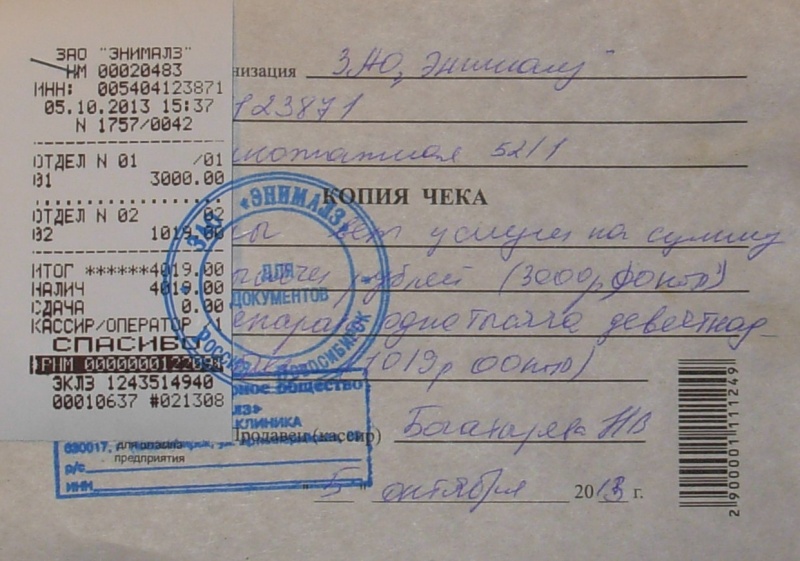 ЗАО "ЭНИМАЛЗ"
НМ 00020483
ИНН: 005404123871
05.10.2013 15:37
N 1757/0042
ОТДЕЛ N 01 /01
01 3000.00
ОТДЕЛ N 02 02
02 1019.00
ИТОГ ******4019.00
НАЛИЧ 4019.00
СДАЧА 0.00
КАССИР/ОПЕРАТОР 1
СПАСИБО
ЭКЛЗ 1243514940
00010637 #021308
низация ЗАО "Энималз"
123871
52/1
КОПИЯ ЧЕКА
вет услуги на сумму
рублей (3000р,00коп)
одна тысяча девятнад-
(1019р 00коп)
Продавец (кассир) НВ
"5" октября 2013 г.
ЗАО «ЭНИМАЛЗ»
ДЛЯ
ДОКУМЕНТОВ
РОССИЯ НОВОСИБИРСК
ное общество
лз»
КЛИНИКА
630017,
предприятия
р/с
ИНН
2 900001 111249